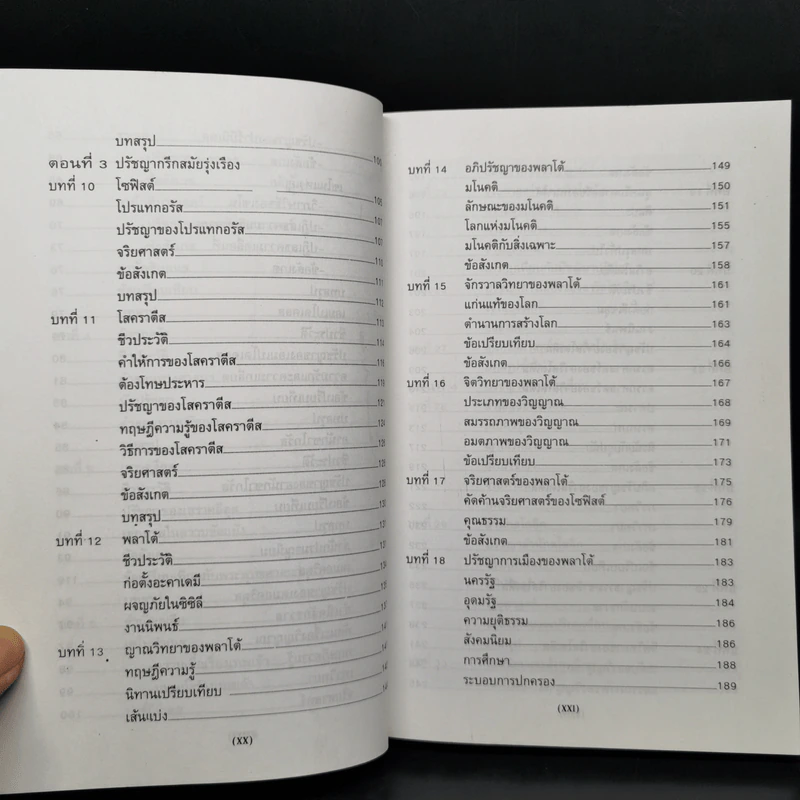 บทสรุป
ตอนที่ 3 ปรัชญากรีกสมัยรุ่งเรือง
บทที่ 10 โซฟิสต์
โปรแทกอรัส
ปรัชญาของโปรแทกอรัส
จริยศาสตร์
ข้อสังเกต
บทสรุป
บทที่ 11 โสคราตีส
ชีวประวัติ
คำให้การของโสคราตีส
ต้องโทษประหาร
ปรัชญาของโสคราตีส
ทฤษฎีความรู้ของโสคราตีส
วิธีการของโสคราตีส
จริยศาสตร์
ข้อสังเกต
บทสรุป
บทที่ 12 พลาโต้
ชีวประวัติ
ก่อตั้งอะคาเดมี
ผจญภัยในซิซิลี
งานนิพนธ์
บทที่ 13 ญาณวิทยาของพลาโต้
ทฤษฎีความรู้
นิทานเปรียบเทียบ
เส้นแบ่ง
(XX)
บทที่ 14 อภิปรัชญาของพลาโต้ 149
มโนคติ 150
ลักษณะของมโนคติ 151
โลกแห่งมโนคติ 155
มโนคติกับสิ่งเฉพาะ 157
ข้อสังเกต 158
บทที่ 15 จักรวาลวิทยาของพลาโต้ 161
แก่นแท้ของโลก 161
ตำนานการสร้างโลก 163
ข้อเปรียบเทียบ 164
ข้อสังเกต 166
บทที่ 16 จิตวิทยาของพลาโต้ 167
ประเภทของวิญญาณ 168
สมรรถภาพของวิญญาณ 169
อมตภาพของวิญญาณ 171
ข้อเปรียบเทียบ 173
บทที่ 17 จริยศาสตร์ของพลาโต้ 175
คัดค้านจริยศาสตร์ของโซฟิสต์ 176
คุณธรรม 179
ข้อสังเกต 181
บทที่ 18 ปรัชญาการเมืองของพลาโต้ 183
นครรัฐ 183
อุตมรัฐ 184
ความยุติธรรม 186
สังคมนิยม 186
การศึกษา 188
ระบอบการปกครอง 189
(XXI)